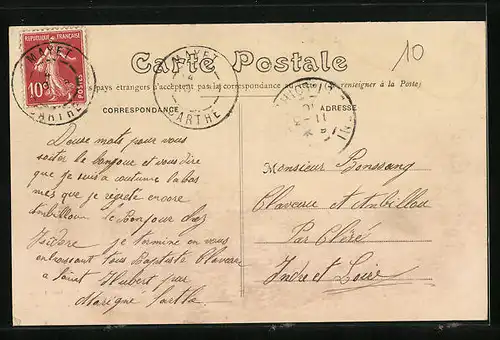 RÉPUBLIQUE FRANÇAISE
10c POSTES
MAYET
SARTHE
MAYET
SARTHE
10
Carte Postale
pays étrangers n'acceptent pas la correspondance au
renseigner à la Poste)
CORRESPONDANCE
ADRESSE
Deuse mots pour vous
soiter le bonjour et vous dire
que je suis a coutume labas
mes que je regrete encore
Ambillou le Bonjour chez
Isidore je termine en vous
enbrassant tous Baptiste Claverie
a Saint Hubert par
Marigne Sarthe
Monsieur Bonssang
Claverie et Ambillou
Par Cléré
Indre et Loire